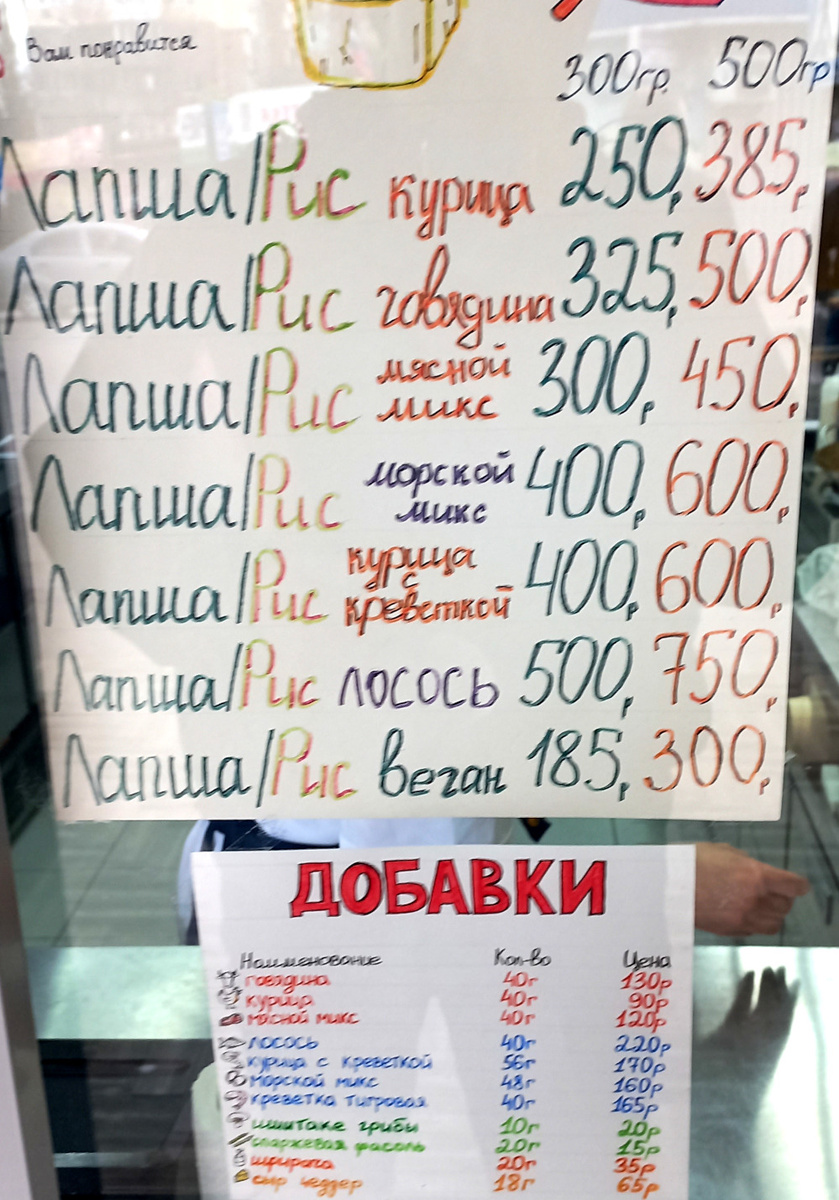 Вам понравится
300гр. 500гр
Лапша/Рис курица 250,р 385,р
Лапша/Рис говядина 325,р 500,р
Лапша/Рис мясной микс 300,р 450,р
Лапша/Рис морской микс 400,р 600,р
Лапша/Рис курица с креветкой 400,р 600,р
Лапша/Рис лосось 500,р 750,р
Лапша/Рис веган 185,р 300,р
ДОБАВКИ
Наименование Кол-во Цена
говядина 40г 130р
курица 40г 90р
мясной микс 40г 120р
лосось 40г 220р
курица с креветкой 56г 170р
морской микс 48г 160р
креветка тигровая 40г 165р
шиитаке грибы 10г 20р
спаржевая фасоль 20г 15р
шрирача 20г 35р
сыр чеддер 18г 65р